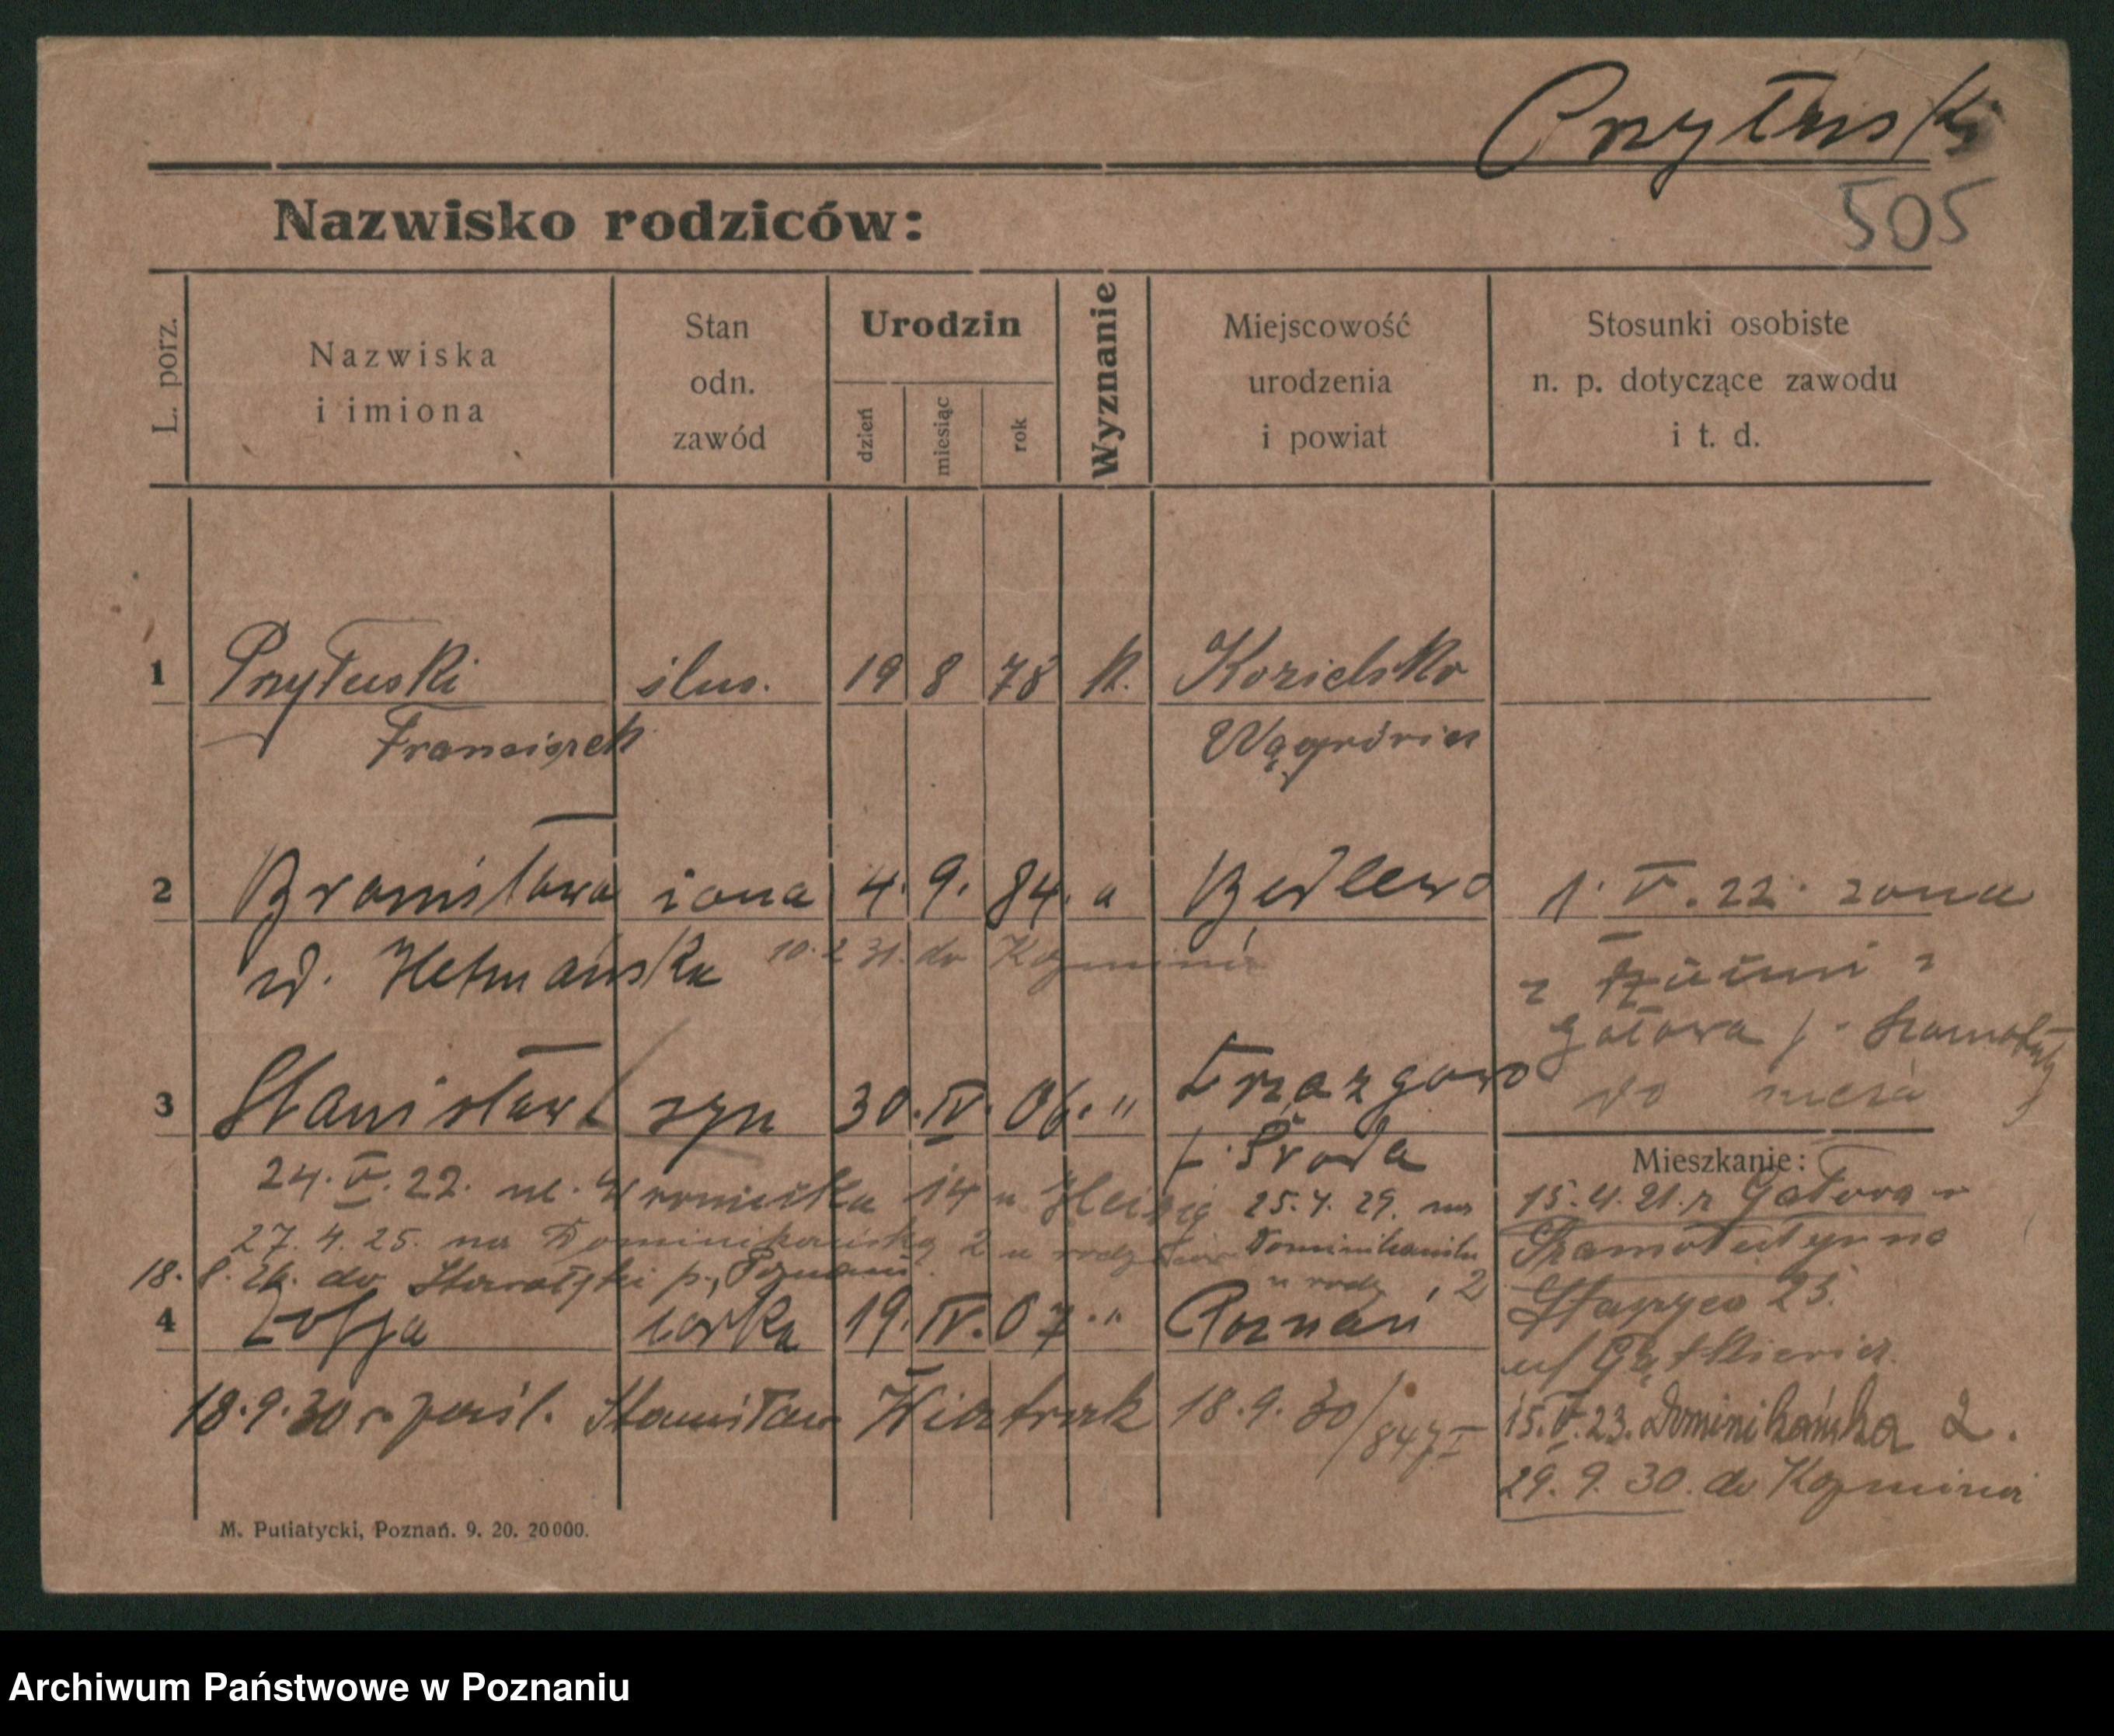 Przyłuski
505
Nazwisko rodziców:
L. porz.
Nazwiska i imiona
Stan odn. zawód
Urodzin
dzień
miesiąc
rok
Wyznanie
Miejscowość urodzenia i powiat
Stosunki osobiste n. p. dotyczące zawodu i t. d.
1 Przyłuski ślus. 19 8 78 k. Kozielsko
Franciszek Wągrówiec
2 Bronisława żona 4. 9. 84. " Bedlewo 1. V. 22. żona
w. Hetmańska 10. 2 31. do Kozmina
z
Gałowa Szamotuły
do męża
3 Stanisław syn 30. IV. 06. "
Środa
Mieszkanie:
24. V. 22. ul. Wroniecka 14 u 25. 4. 29. na
15. 4. 21. z Gałowa
27. 4. 25. na Dominikańską 2 u rodziców Dominikańska
u rodz. 2
18. 8. do p. Poznań
4 Zofja córka 19. IV. 07. " Poznań
23.
18. 9. 30 r. zaśl. Stanisław Wiatrak 18. 9. 30/847 I
15. V. 23. Dominikańska 2.
29. 9. 30. do Kozmina
M. Putiatycki, Poznań. 9. 20. 20000.
Archiwum Państwowe w Poznaniu